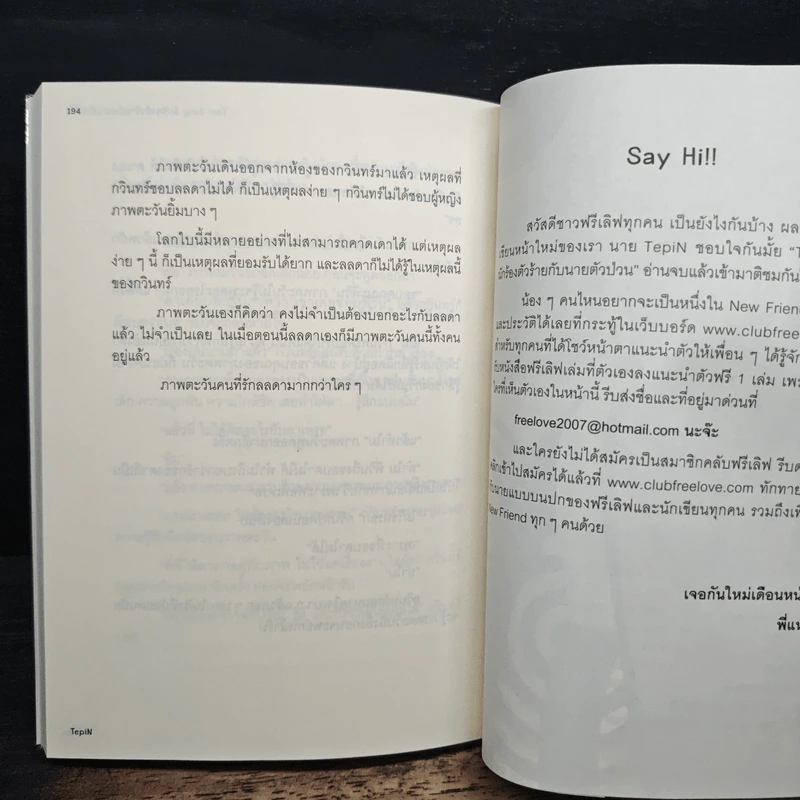 194
ภาพตะวันเดินออกจากห้องของกวินทร์มาแล้ว เหตุผลที่
กวินทร์ชอบลลดาไม่ได้ ก็เป็นเหตุผลง่าย ๆ กวินทร์ไม่ได้ชอบผู้หญิง
ภาพตะวันยิ้มบาง ๆ
โลกใบนี้มีหลายอย่างที่ไม่สามารถคาดเดาได้ แต่เหตุผล
ง่าย ๆ นี้ ก็เป็นเหตุผลที่ยอมรับได้ยาก และลลดาก็ไม่ได้รู้ในเหตุผลนี้
ของกวินทร์
ภาพตะวันเองก็คิดว่า คงไม่จำเป็นต้องบอกอะไรกับลลดา
แล้ว ไม่จำเป็นเลย ในเมื่อตอนนี้ลลดาเองก็มีภาพตะวันคนนี้ทั้งคน
อยู่แล้ว
ภาพตะวันคนที่รักลลดามากกว่าใคร ๆ
TepiN
Say Hi!!
สวัสดีชาวฟรีเลิฟทุกคน เป็นยังไงกันบ้าง ผล
เขียนหน้าใหม่ของเรา นาย TepiN ชอบใจกันมั้ย "T
นักร้องตัวร้ายกับนายตัวป่วน" อ่านจบแล้วเข้ามาติชมกัน
น้อง ๆ คนไหนอยากจะเป็นหนึ่งใน New Friend
และประวัติได้เลยที่กระทู้ในเว็บบอร์ด www.clubfree
สำหรับทุกคนที่ได้โชว์หน้าตาแนะนำตัวให้เพื่อน ๆ ได้รู้จัก
รับหนังสือฟรีเลิฟเล่มที่ตัวเองลงแนะนำตัวฟรี 1 เล่ม เพร
ใครที่เห็นตัวเองในหน้านี้ รีบส่งชื่อและที่อยู่มาด่วนที่
freelove2007@hotmail.com นะจ๊ะ
และใครยังไม่ได้สมัครเป็นสมาชิกคลับฟรีเลิฟ รีบด
คลิกเข้าไปสมัครได้แล้วที่ www.clubfreelove.com ทักทาย
กับนายแบบบนปกของฟรีเลิฟและนักเขียนทุกคน รวมถึงเพื่
New Friend ทุก ๆ คนด้วย
เจอกันใหม่เดือนหน้
พี่แน